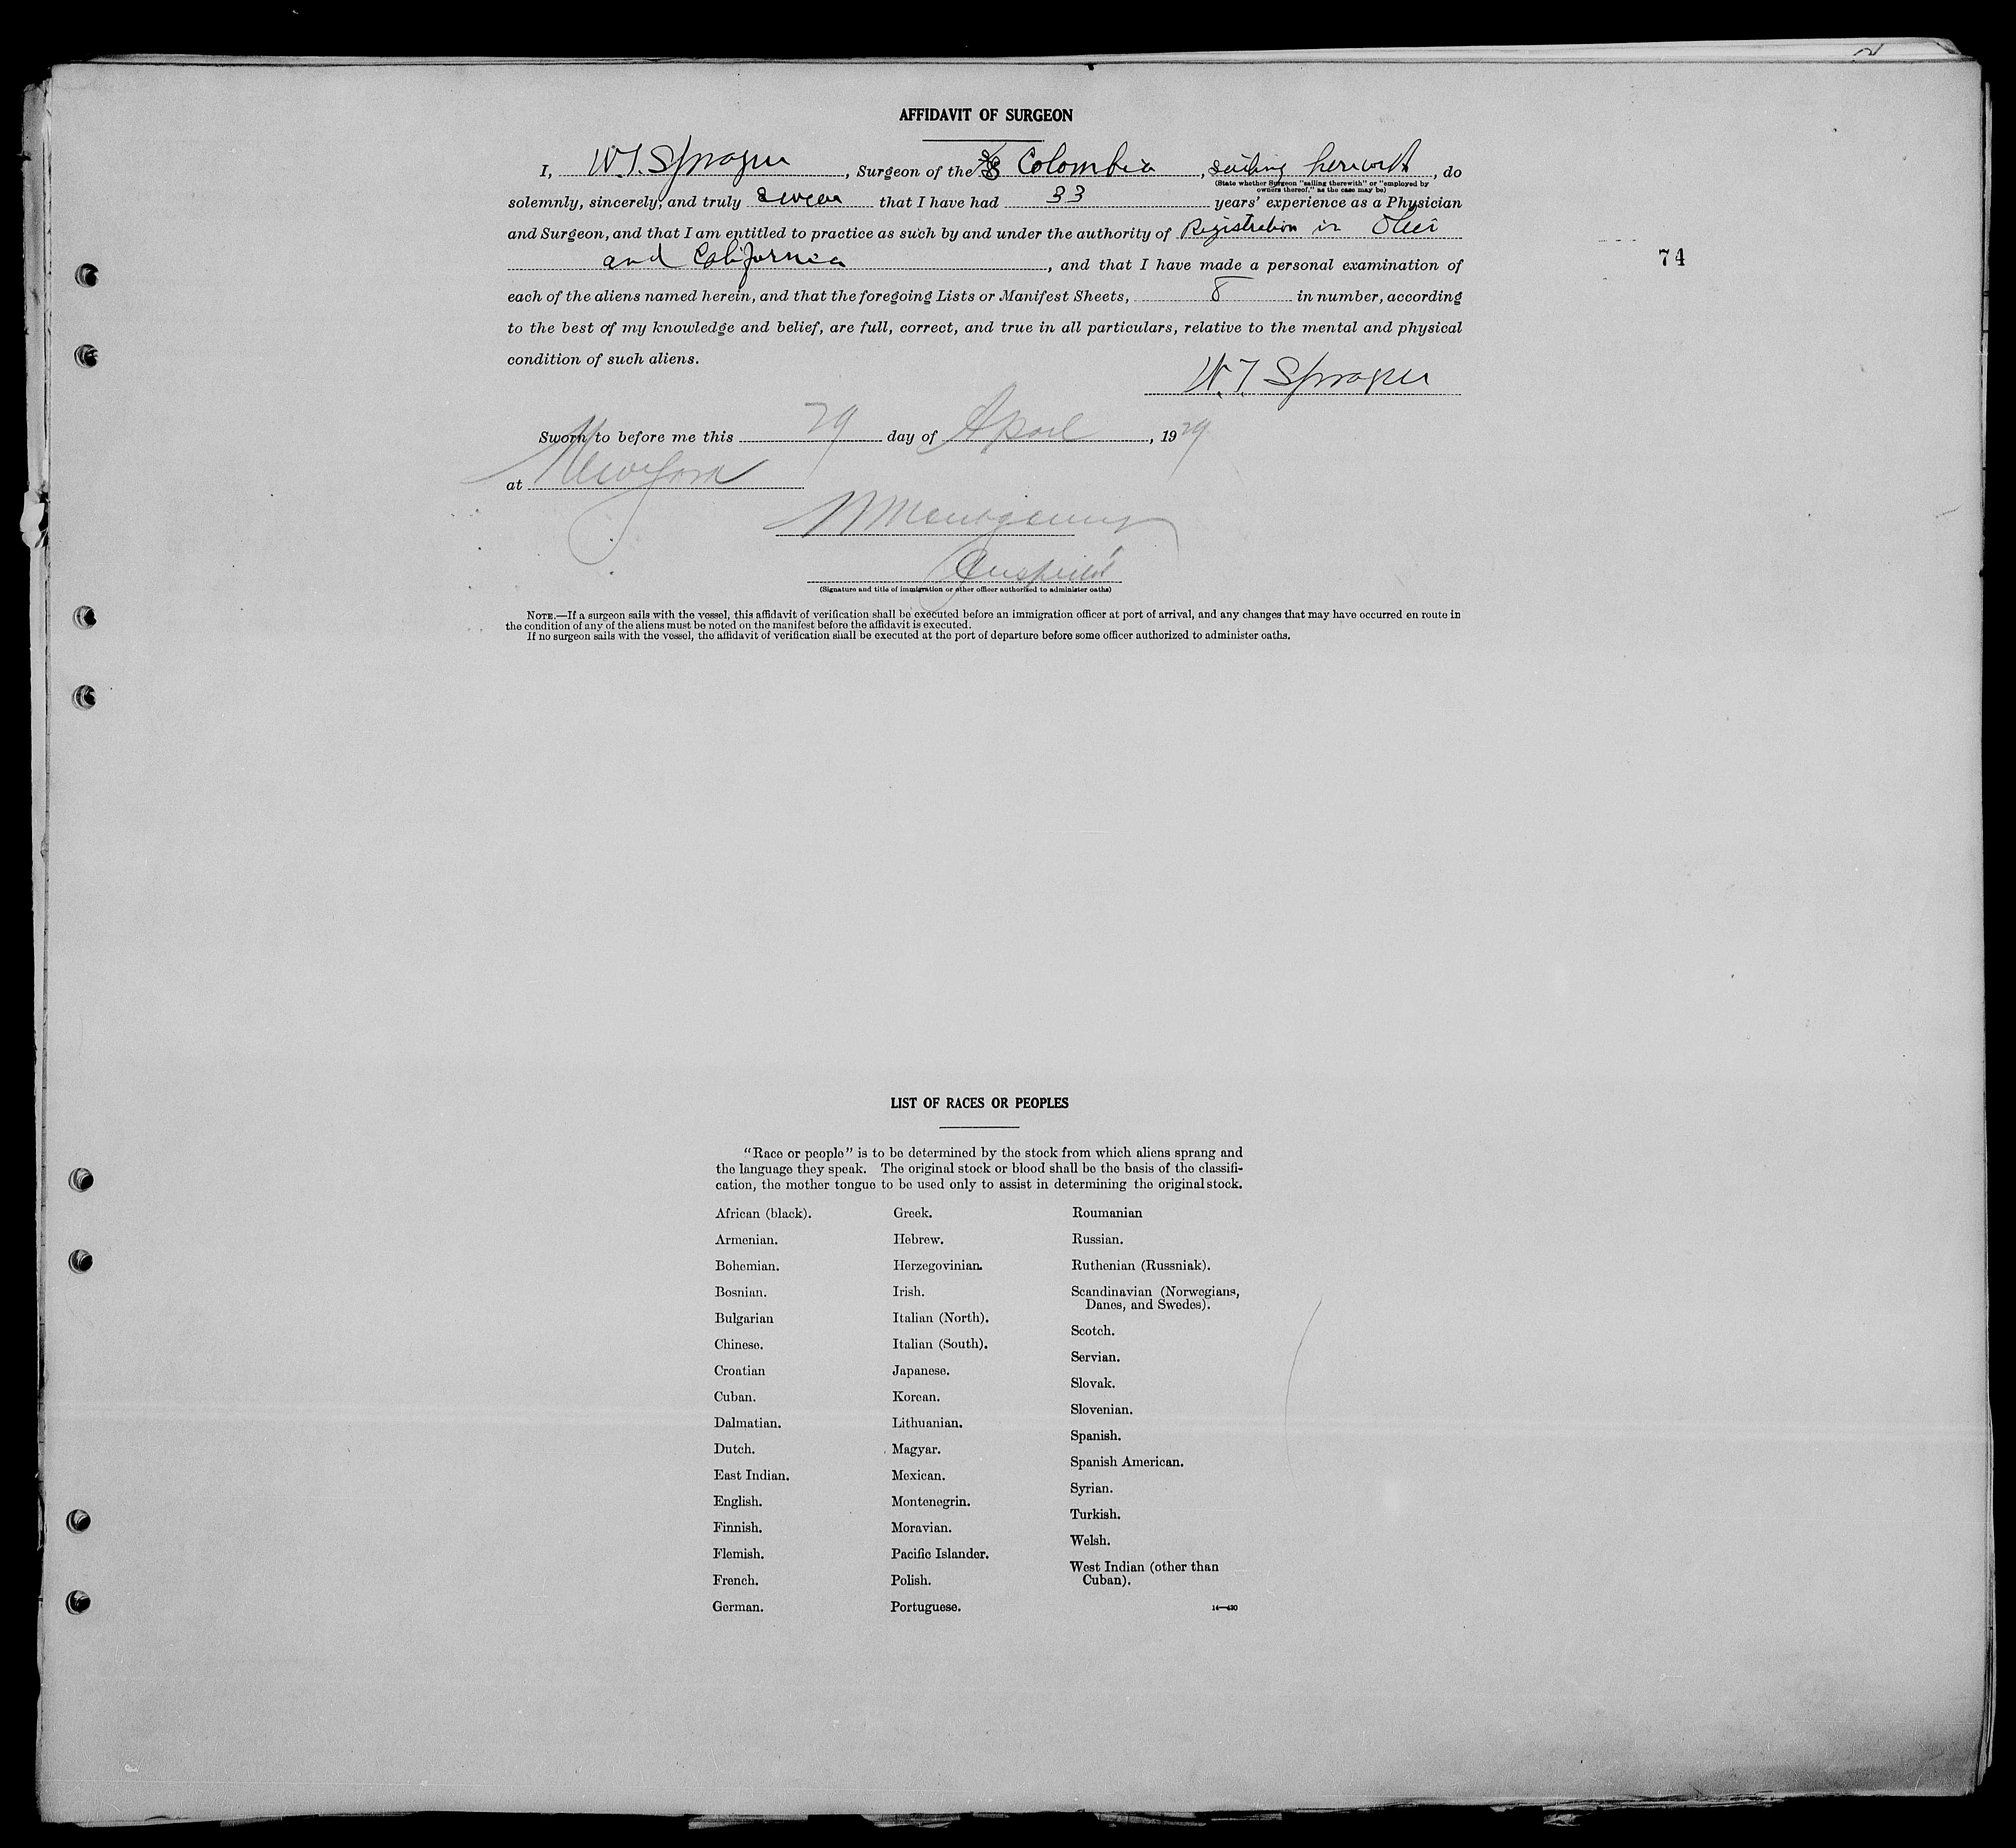 AFFIDAVIT OF SURGEON
I, W. T. Sprague, Surgeon of the SS Colombia, sailing herewith, do
(State whether Surgeon "sailing therewith" or "employed by
owners thereof," as the case may be)
solemnly, sincerely, and truly swear that I have had 33 years' experience as a Physician
and Surgeon, and that I am entitled to practice as such by and under the authority of Registration in Ohio
and California, and that I have made a personal examination of
74
each of the aliens named herein, and that the foregoing Lists or Manifest Sheets, 8 in number, according
to the best of my knowledge and belief, are full, correct, and true in all particulars, relative to the mental and physical
condition of such aliens.
W. T. Sprague
Sworn to before me this 29 day of April, 1929
at New York
Montgomery
(Signature and title of immigration or other officer authorized to administer oaths)
NOTE.—If a surgeon sails with the vessel, this affidavit of verification shall be executed before an immigration officer at port of arrival, and any changes that may have occurred en route in
the condition of any of the aliens must be noted on the manifest before the affidavit is executed.
If no surgeon sails with the vessel, the affidavit of verification shall be executed at the port of departure before some officer authorized to administer oaths.
LIST OF RACES OR PEOPLES
"Race or people" is to be determined by the stock from which aliens sprang and
the language they speak. The original stock or blood shall be the basis of the classifi-
cation, the mother tongue to be used only to assist in determining the original stock.
African (black).
Armenian.
Bohemian.
Bosnian.
Bulgarian
Chinese.
Croatian
Cuban.
Dalmatian.
Dutch.
East Indian.
English.
Finnish.
Flemish.
French.
German.
Greek.
Hebrew.
Herzegovinian.
Irish.
Italian (North).
Italian (South).
Japanese.
Korean.
Lithuanian.
Magyar.
Mexican.
Montenegrin.
Moravian.
Pacific Islander.
Polish.
Portuguese.
Roumanian
Russian.
Ruthenian (Russniak).
Scandinavian (Norwegians,
Danes, and Swedes).
Scotch.
Servian.
Slovak.
Slovenian.
Spanish.
Spanish American.
Syrian.
Turkish.
Welsh.
West Indian (other than
Cuban).
14—430